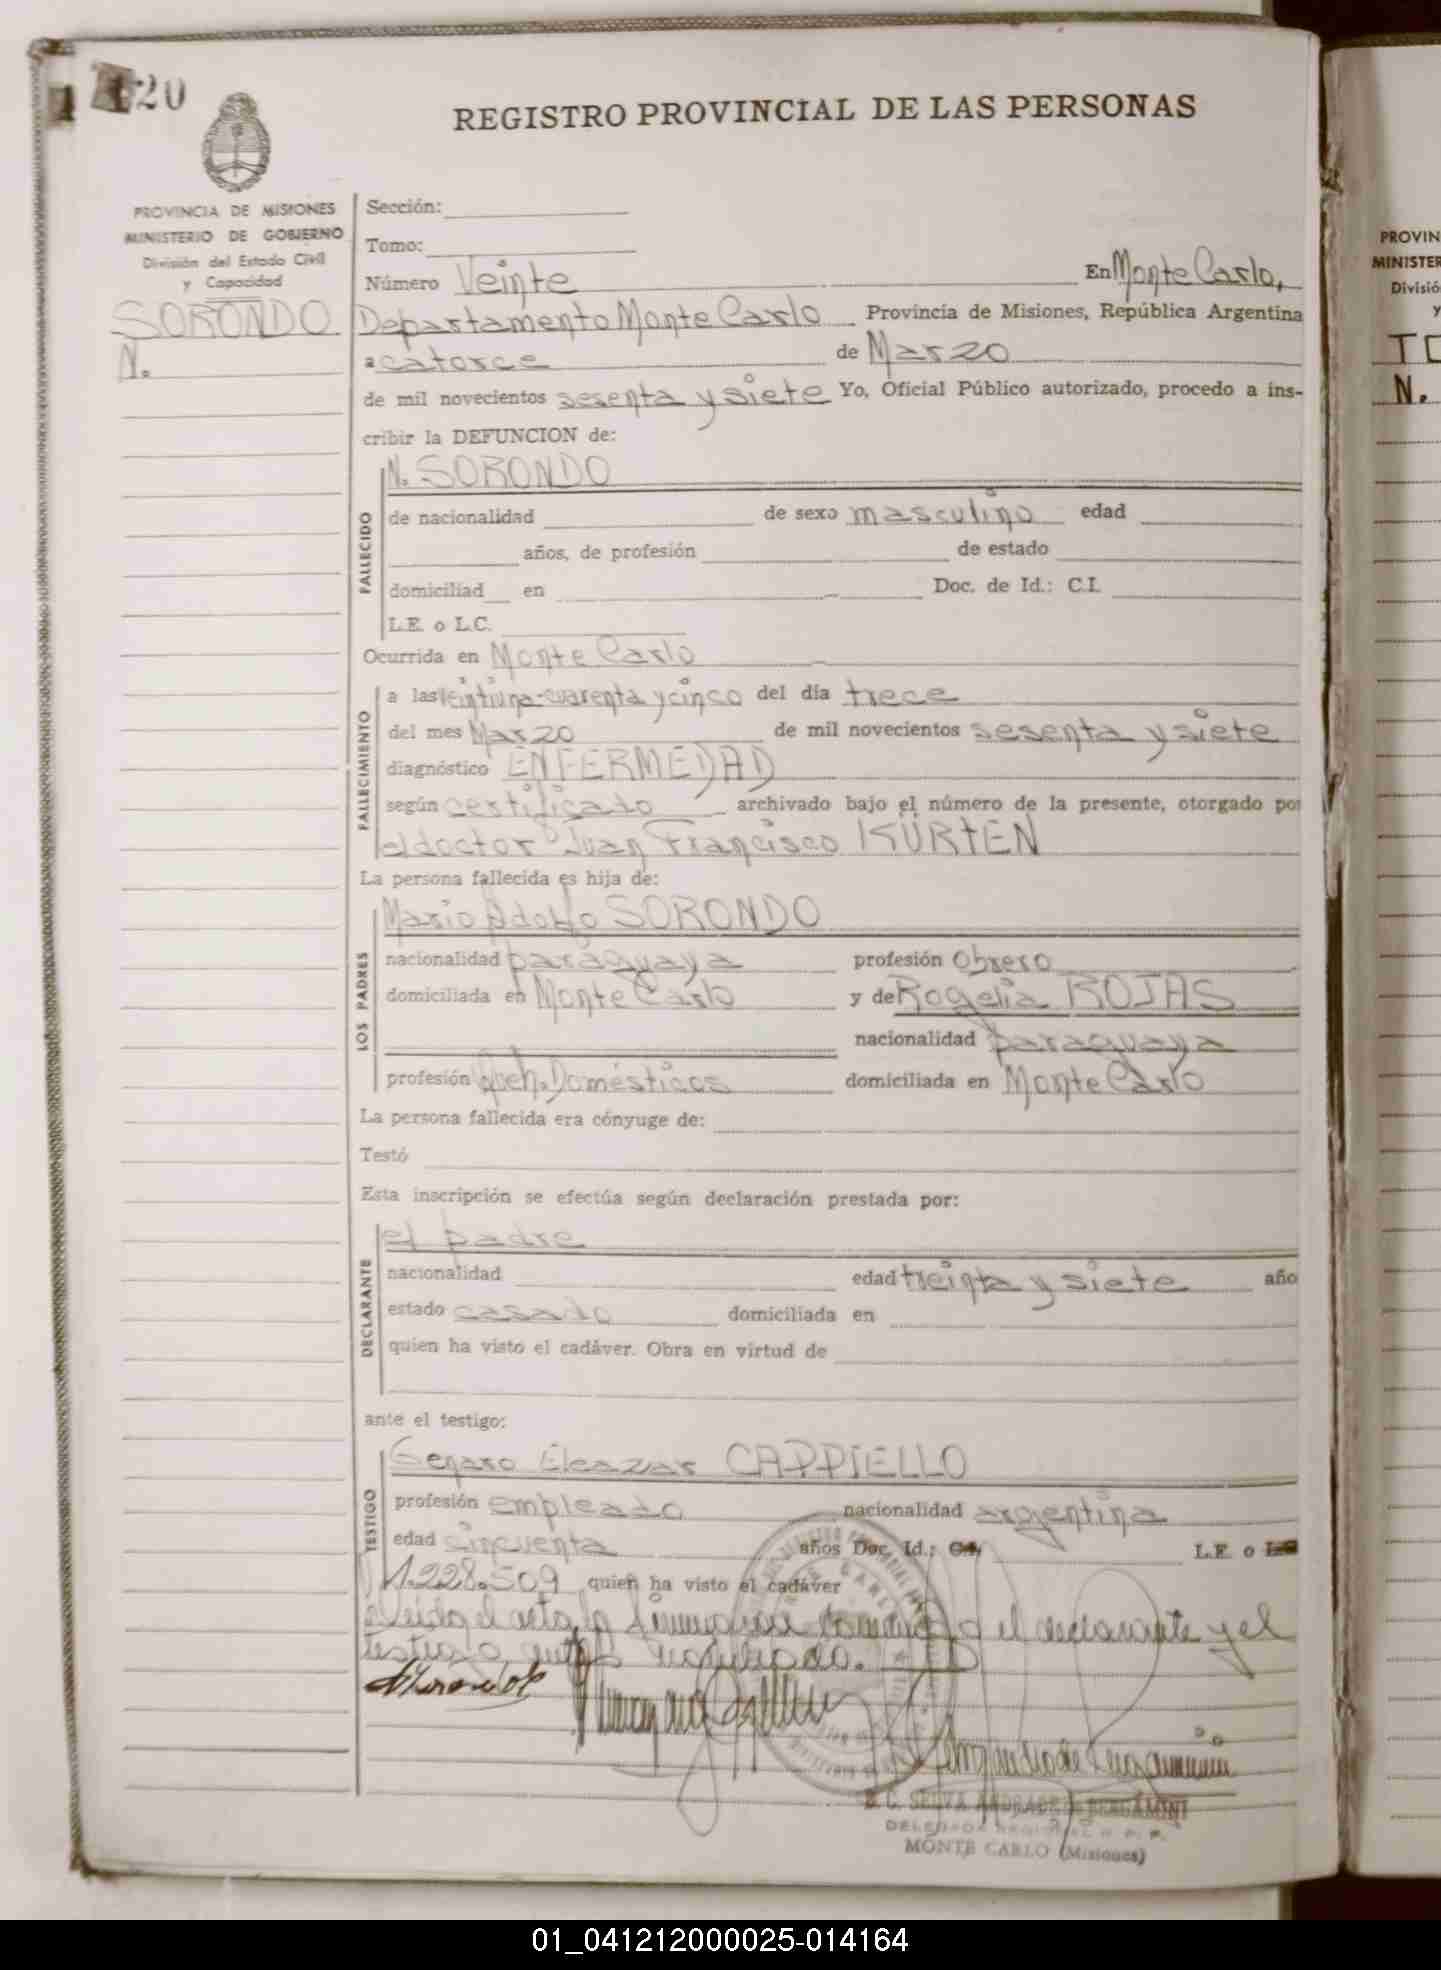 20
REGISTRO PROVINCIAL DE LAS PERSONAS
PROVINCIA DE MISIONES
MINISTERIO DE GOBIERNO
División del Estado Civil
y Capacidad
SORONDO
N.
Sección:
Tomo:
Número Veinte En Monte Carlo,
Departamento Monte Carlo Provincia de Misiones, República Argentina
a catorce de Marzo
de mil novecientos sesenta y siete Yo, Oficial Público autorizado, procedo a ins-
cribir la DEFUNCION de:
FALLECIDO
N. SORONDO
de nacionalidad de sexo masculino edad
años, de profesión de estado
domiciliad en Doc. de Id.: C.I.
L.E. o L.C.
Ocurrida en Monte Carlo
FALLECIMIENTO
a las Veintiuna cuarenta y cinco del día trece
del mes Marzo de mil novecientos sesenta y siete
diagnóstico ENFERMEDAD
según certificado archivado bajo el número de la presente, otorgado por
el doctor Juan Francisco KÜRTEN
La persona fallecida es hija de:
LOS PADRES
Mario Adolfo SORONDO
nacionalidad paraguaya profesión Obrero
domiciliada en Monte Carlo y de Rogelia ROJAS
nacionalidad paraguaya
profesión Queh. Domésticos domiciliada en Monte Carlo
La persona fallecida era cónyuge de:
Testó
Esta inscripción se efectúa según declaración prestada por:
DECLARANTE
el padre
nacionalidad edad treinta y siete año
estado casado domiciliada en
quien ha visto el cadáver. Obra en virtud de
ante el testigo:
TESTIGO
Genaro Eleazar CAPPIELLO
profesión empleado nacionalidad argentina
edad cincuenta años Doc. Id.: C.I. L.E. o L.C.
1.228.509 quien ha visto el cadáver
Leída el acta, la firman conmigo el declarante y el
testigo
S. C. SELVA ANDRADE de BERGAMINI
MONTE CARLO (Misiones)
PROVIN
MINISTER
Divisió
y
N.
01_041212000025-014164